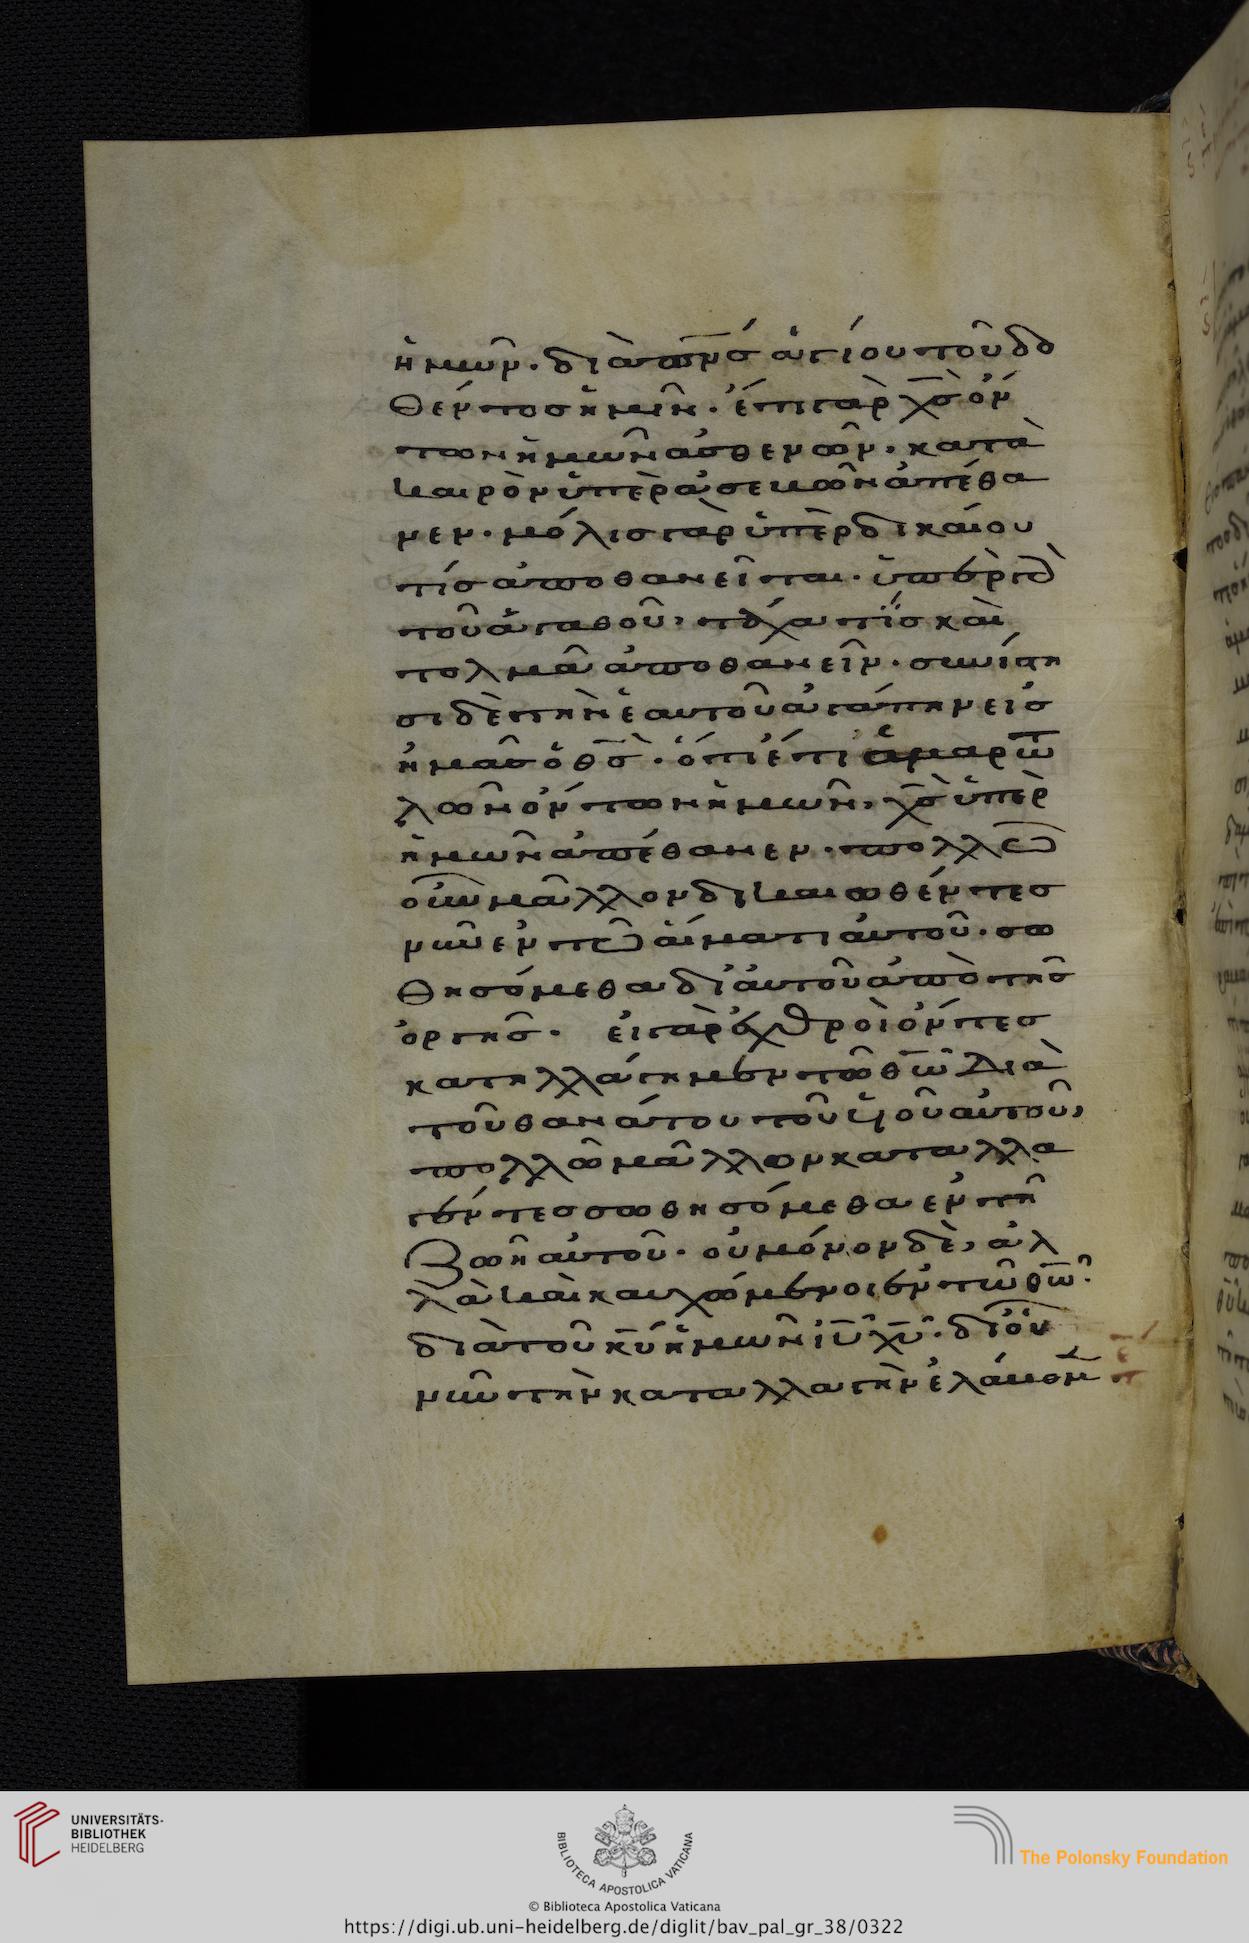 ἡμῶν. διὰ πνσ ἁγίου τοῦ δο
θέντος ἡμῖν. ἔτι γὰρ χσ ὄν
των ἡμῶν ἀσθενῶν. κατὰ
καιρὸν ὑπὲρ ἀσεβῶν ἀπέθα
νεν. μόλις γὰρ ὑπὲρ δικαίου
τίς ἀποθανεῖται. ὑπὲρ γὰ
τοῦ ἀγαθοῦ, τάχα τίς καὶ
τολμᾶ ἀποθανεῖν. συνίστη
σι δὲ τὴν ἑαυτοῦ ἀγάπην εἰς
ἡμᾶς ὁ θσ. ὅτι ἔτι ἁμαρτω
λῶν ὄντων ἡμῶν, χσ ὑπὲρ
ἡμῶν ἀπέθανεν. πολλῶ
οὖν μᾶλλον δικαιωθέντες
νῦν ἐν τῶ αἵματι αὐτοῦ. σω
θησόμεθα δι' αὐτοῦ ἀπὸ τῆς
ὀργῆς. εἰ γὰρ ἐχθροὶ ὄντες
κατηλλάγημεν τῶ θω διὰ
τοῦ θανάτου τοῦ υἱοῦ αὐτοῦ,
πολλῶ μᾶλλον καταλλα
γέντες σωθησόμεθα ἐν τῆ
ζωῆ αὐτοῦ. οὐ μόνον δὲ, ἀλ
λὰ καὶ καυχώμενοι ἐν τῶ θω.
διὰ τοῦ κυ ἡμῶν ιυ χυ. δι' οὗ
νῦν τὴν καταλλαγὴν ἐλάβομεν
UNIVERSITÄTS-
BIBLIOTHEK
HEIDELBERG
BIBLIOTECA APOSTOLICA VATICANA
The Polonsky Foundation
© Biblioteca Apostolica Vaticana
https://digi.ub.uni-heidelberg.de/diglit/bav_pal_gr_38/0322